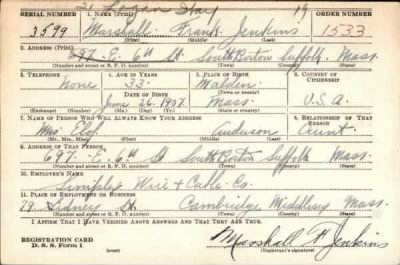 21 Logan Way 19
SERIAL NUMBER 1. NAME (Print) ORDER NUMBER
3599 Marshall Frank Jenkins 1533
(First) (Middle) (Last)
2. ADDRESS (Print)
E. 6th St South Boston Suffolk Mass.
(Number and street or R. F. D. number) (Town) (County) (State)
3. TELEPHONE 4. AGE IN YEARS 5. PLACE OF BIRTH 6. COUNTRY OF CITIZENSHIP
None 33 Malden
DATE OF BIRTH (Town or county)
June 26 1907 Mass. U.S.A.
(Exchange) (Number) (Mo.) (Day) (Yr.) (State or country)
7. NAME OF PERSON WHO WILL ALWAYS KNOW YOUR ADDRESS 8. RELATIONSHIP OF THAT PERSON
Mrs Olof Anderson Aunt
(Mr., Mrs., Miss) (First) (Middle) (Last)
9. ADDRESS OF THAT PERSON
697 E. 6th St South Boston Suffolk Mass.
(Number and street or R. F. D. number) (Town) (County) (State)
10. EMPLOYER'S NAME
Simplex Wire & Cable Co.
11. PLACE OF EMPLOYMENT OR BUSINESS
79 Sidney St. Cambridge Middlesex Mass
(Number and street or R. F. D. number) (Town) (County) (State)
I AFFIRM THAT I HAVE VERIFIED ABOVE ANSWERS AND THAT THEY ARE TRUE.
REGISTRATION CARD
D. S. S. Form 1 (over) Marshall F. Jenkins
(Registrant's signature)